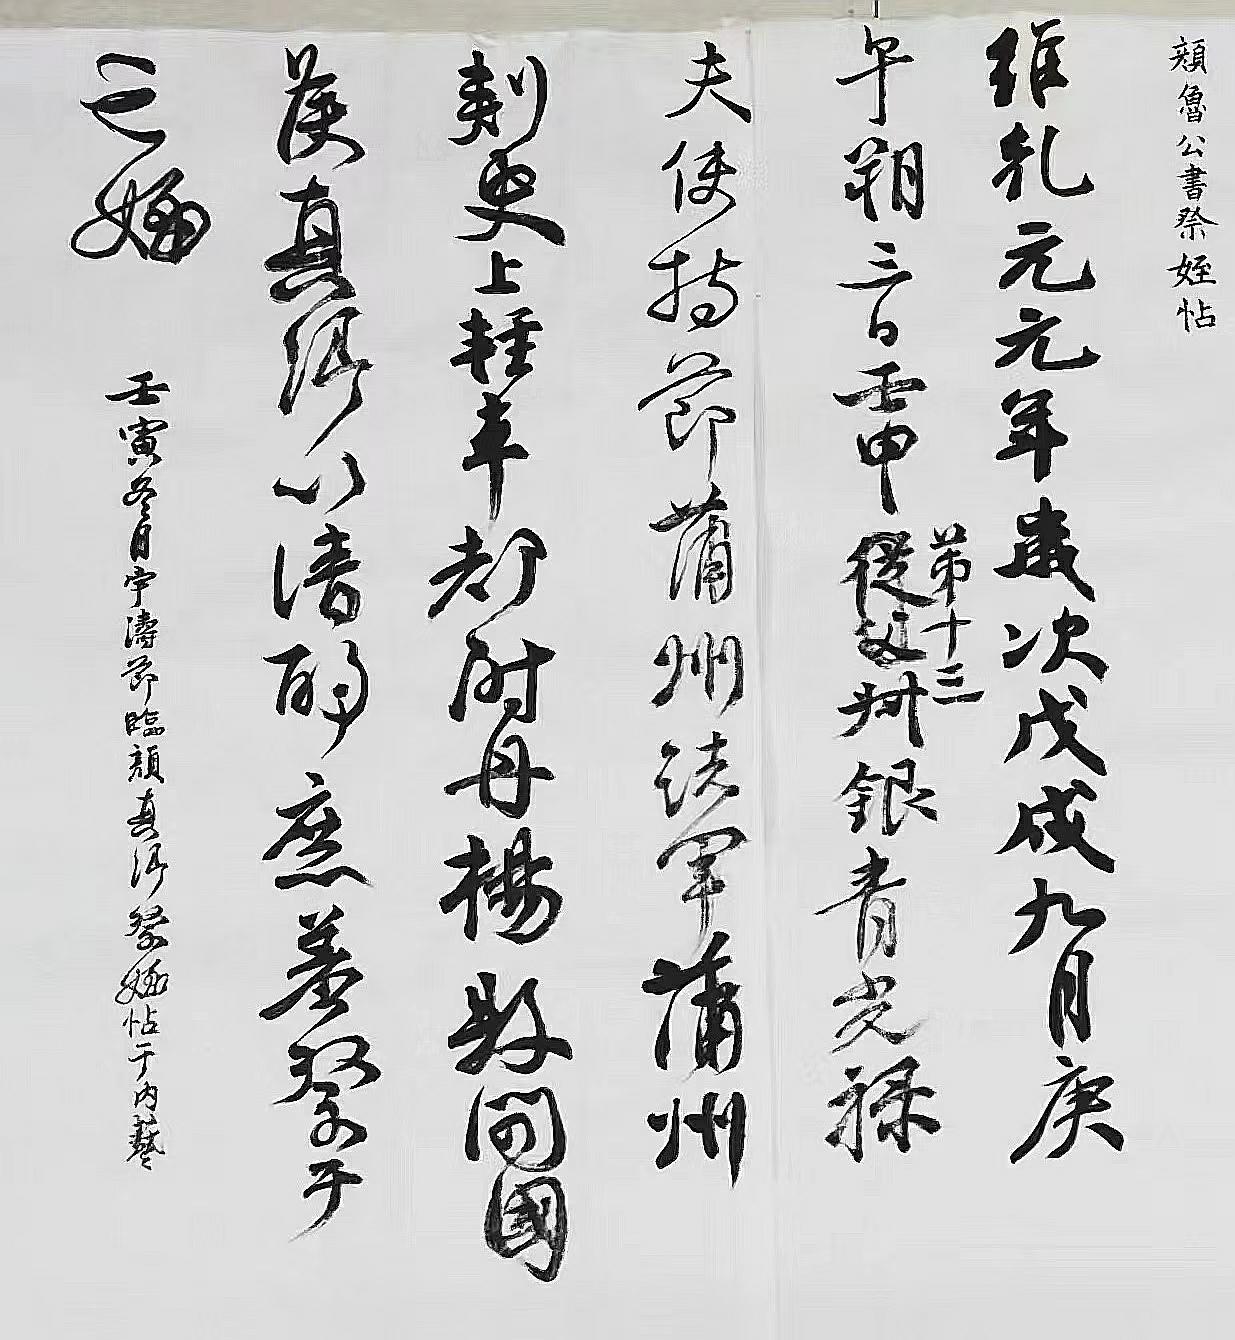 顏魯公書祭姪帖
維乹元元年歲次戊戌九月庚
午朔三日壬申從父叔銀青光禄
第十三
夫使持節蒲州諸軍蒲州
刺史上輕車都尉丹楊縣開國
侯真卿以清酌庶羞祭于
亡姪
壬寅冬月宇濤節臨顏真卿祭姪帖于内藝